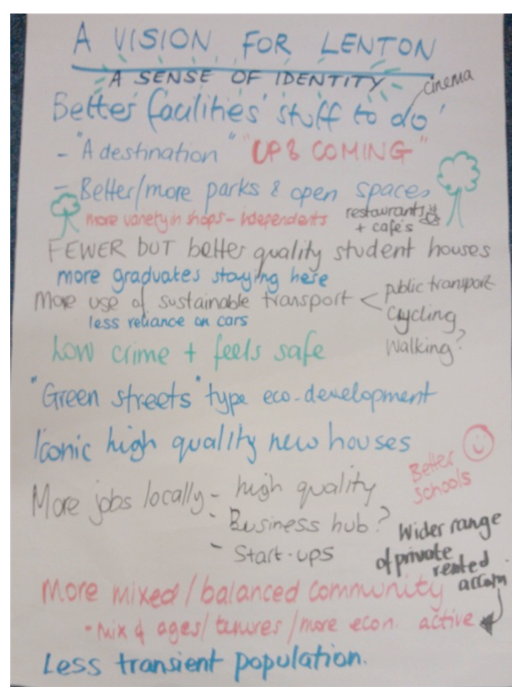 A VISION FOR LENTON
A SENSE OF IDENTITY
cinema
Better facilities 'stuff to do'
- "A destination" "UP & COMING"
- Better/more parks & open spaces
more variety in shops - independents
restaurants
+ cafés
FEWER BUT better quality student houses
more graduates staying here
More use of sustainable transport < public transport
less reliance on cars
Cycling
Walking?
Low crime + feels safe
"Green streets" type eco-development
Iconic high quality new houses
Better
Schools
More jobs locally - high quality
- Business hub?
- Start-ups
Wider range
of private
rented
accom
More mixed/balanced community
- Mix of ages/tenures/more econ. active
Less transient population.